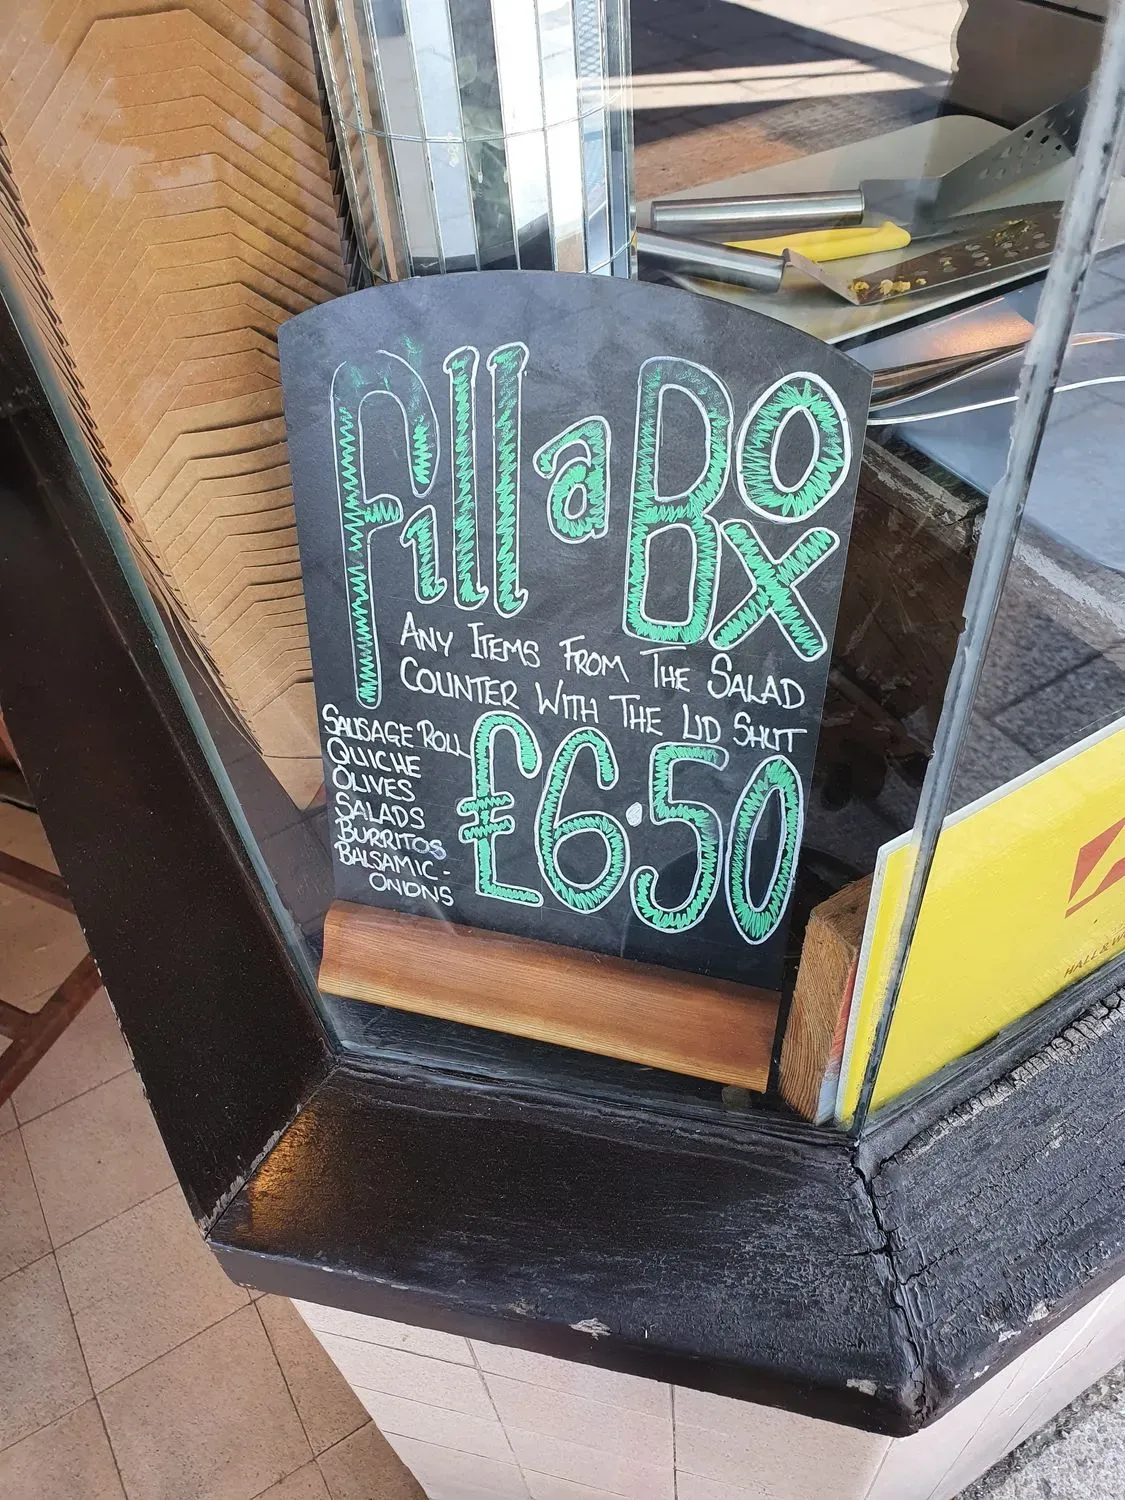 Fill a BOX
ANY ITEMS FROM THE SALAD
COUNTER WITH THE LID SHUT
£6.50
SAUSAGE ROLL
QUICHE
OLIVES
SALADS
BURRITOS
BALSAMIC-
ONIONS
HALL &